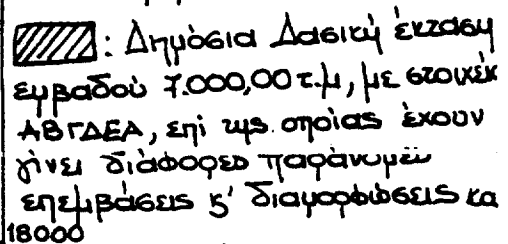 : Δημόσια Δασική έκταση
εμβαδού 7.000,00 τ.μ, με στοιχεία
ΑΒΓΔΕΑ, επί της οποίας έχουν
γίνει διάφορες παράνομες
επεμβάσεις ς' διαμορφώσεις κα
18000